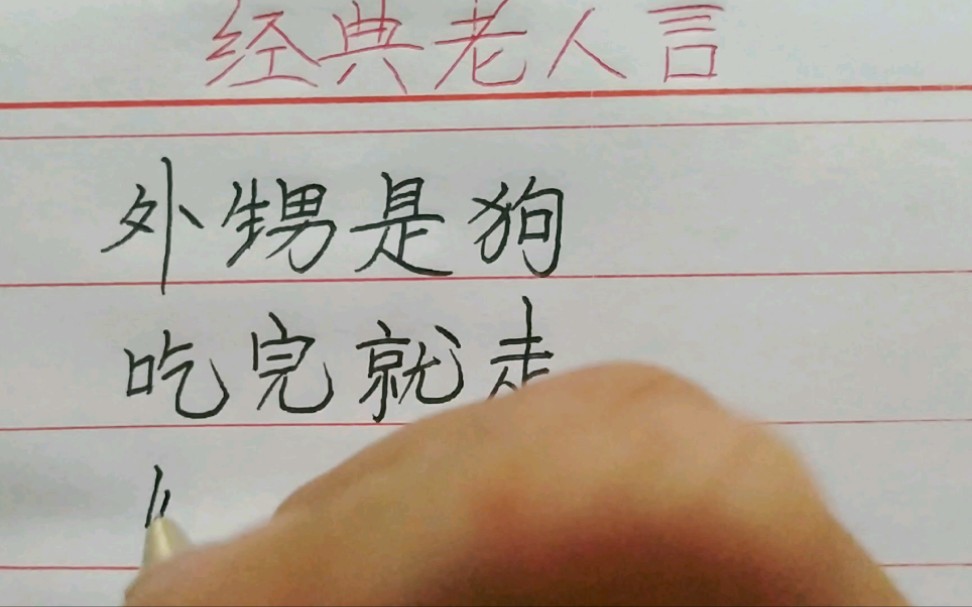 经典老人言
外甥是狗
吃完就走